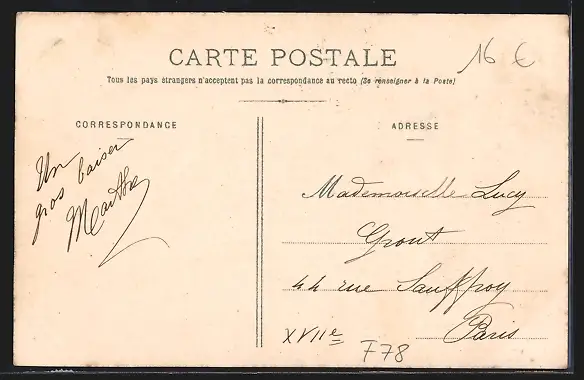 CARTE POSTALE
Tous les pays étrangers n'acceptent pas la correspondance au recto (Se renseigner à la Poste)
16 €
CORRESPONDANCE
Un
gros baiser
Marthe
ADRESSE
Mademoiselle Lucy
Grout
44 rue Sauffroy
Paris
XVIIe
F78